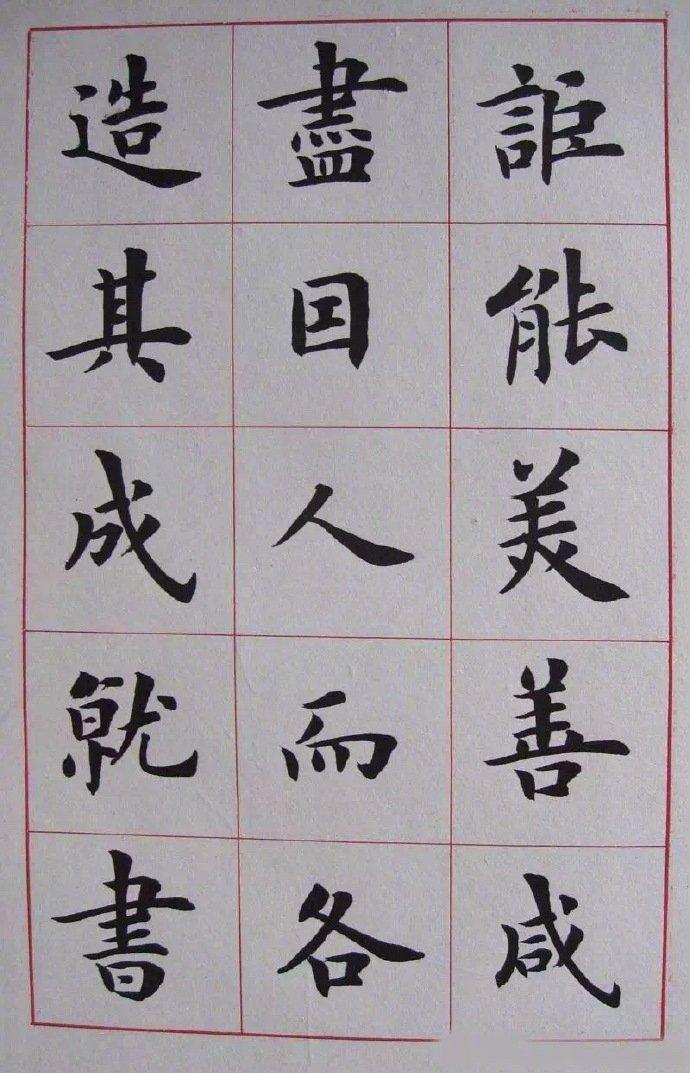 詎能美善咸
盡因人而各
造其成就書